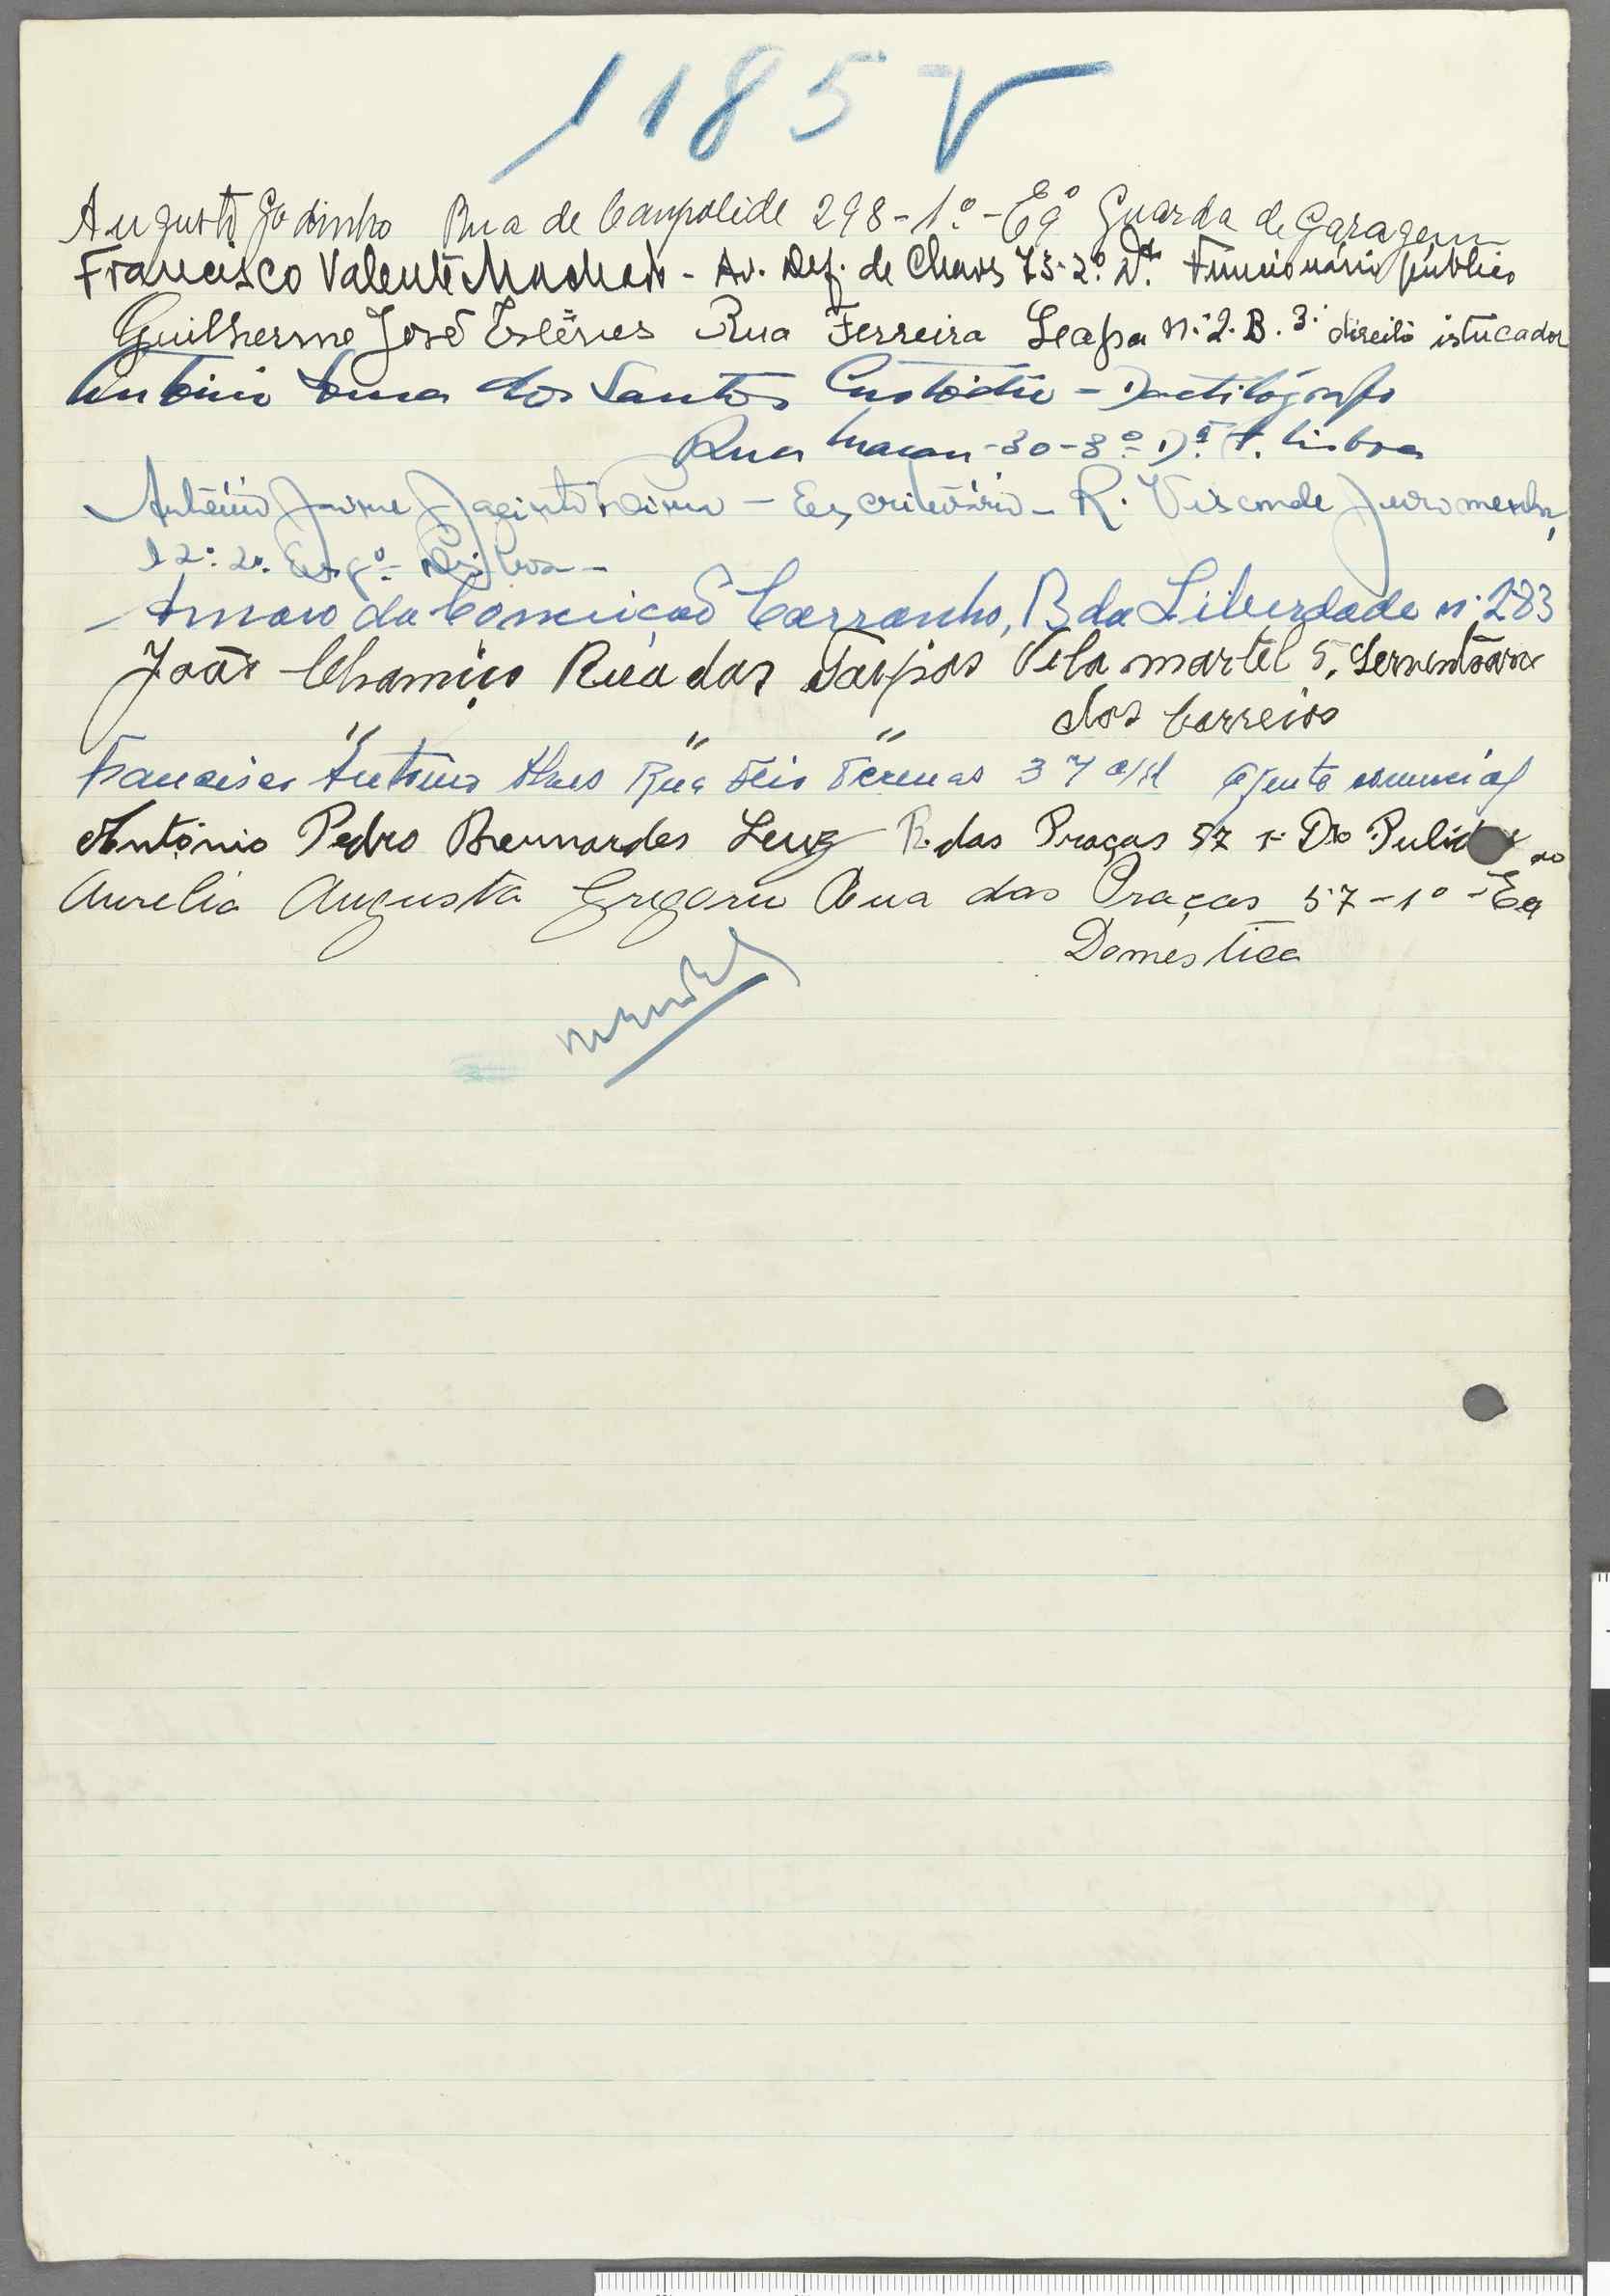 1185 V
Augusto Godinho Rua de Campolide 298-1º-Eqº Guarda de Garagem
Francisco Valente Machado - Av. Def. de Chaves 73-2º. Dto. Funcionário público
Guilherme José Estêves Rua Ferreira Leapa n.º 2. B. 3.º direito istucador
António dos Santos Custódio - Dactilógrafo
Rua Macau -30-3º- D.t. Lisboa
António Jaime Jacinto - Escriturário - R. Visconde Juromenha,
12-2º. Esqº - Lisboa -
Amaro da Conceição Carranho, B da Liberdade n.º 283
João Chamiço Rua das Taipas Vila martel 5.
dos Correios
" " "
Francisco António Alves Rua Feio Terenas 37 Agente comercial
António Pedro Bernardes Luz R. das Praças 57 1º Dto
Aurelia Augusta Gregorio Rua das Praças 57-1º-Eq
Domestica